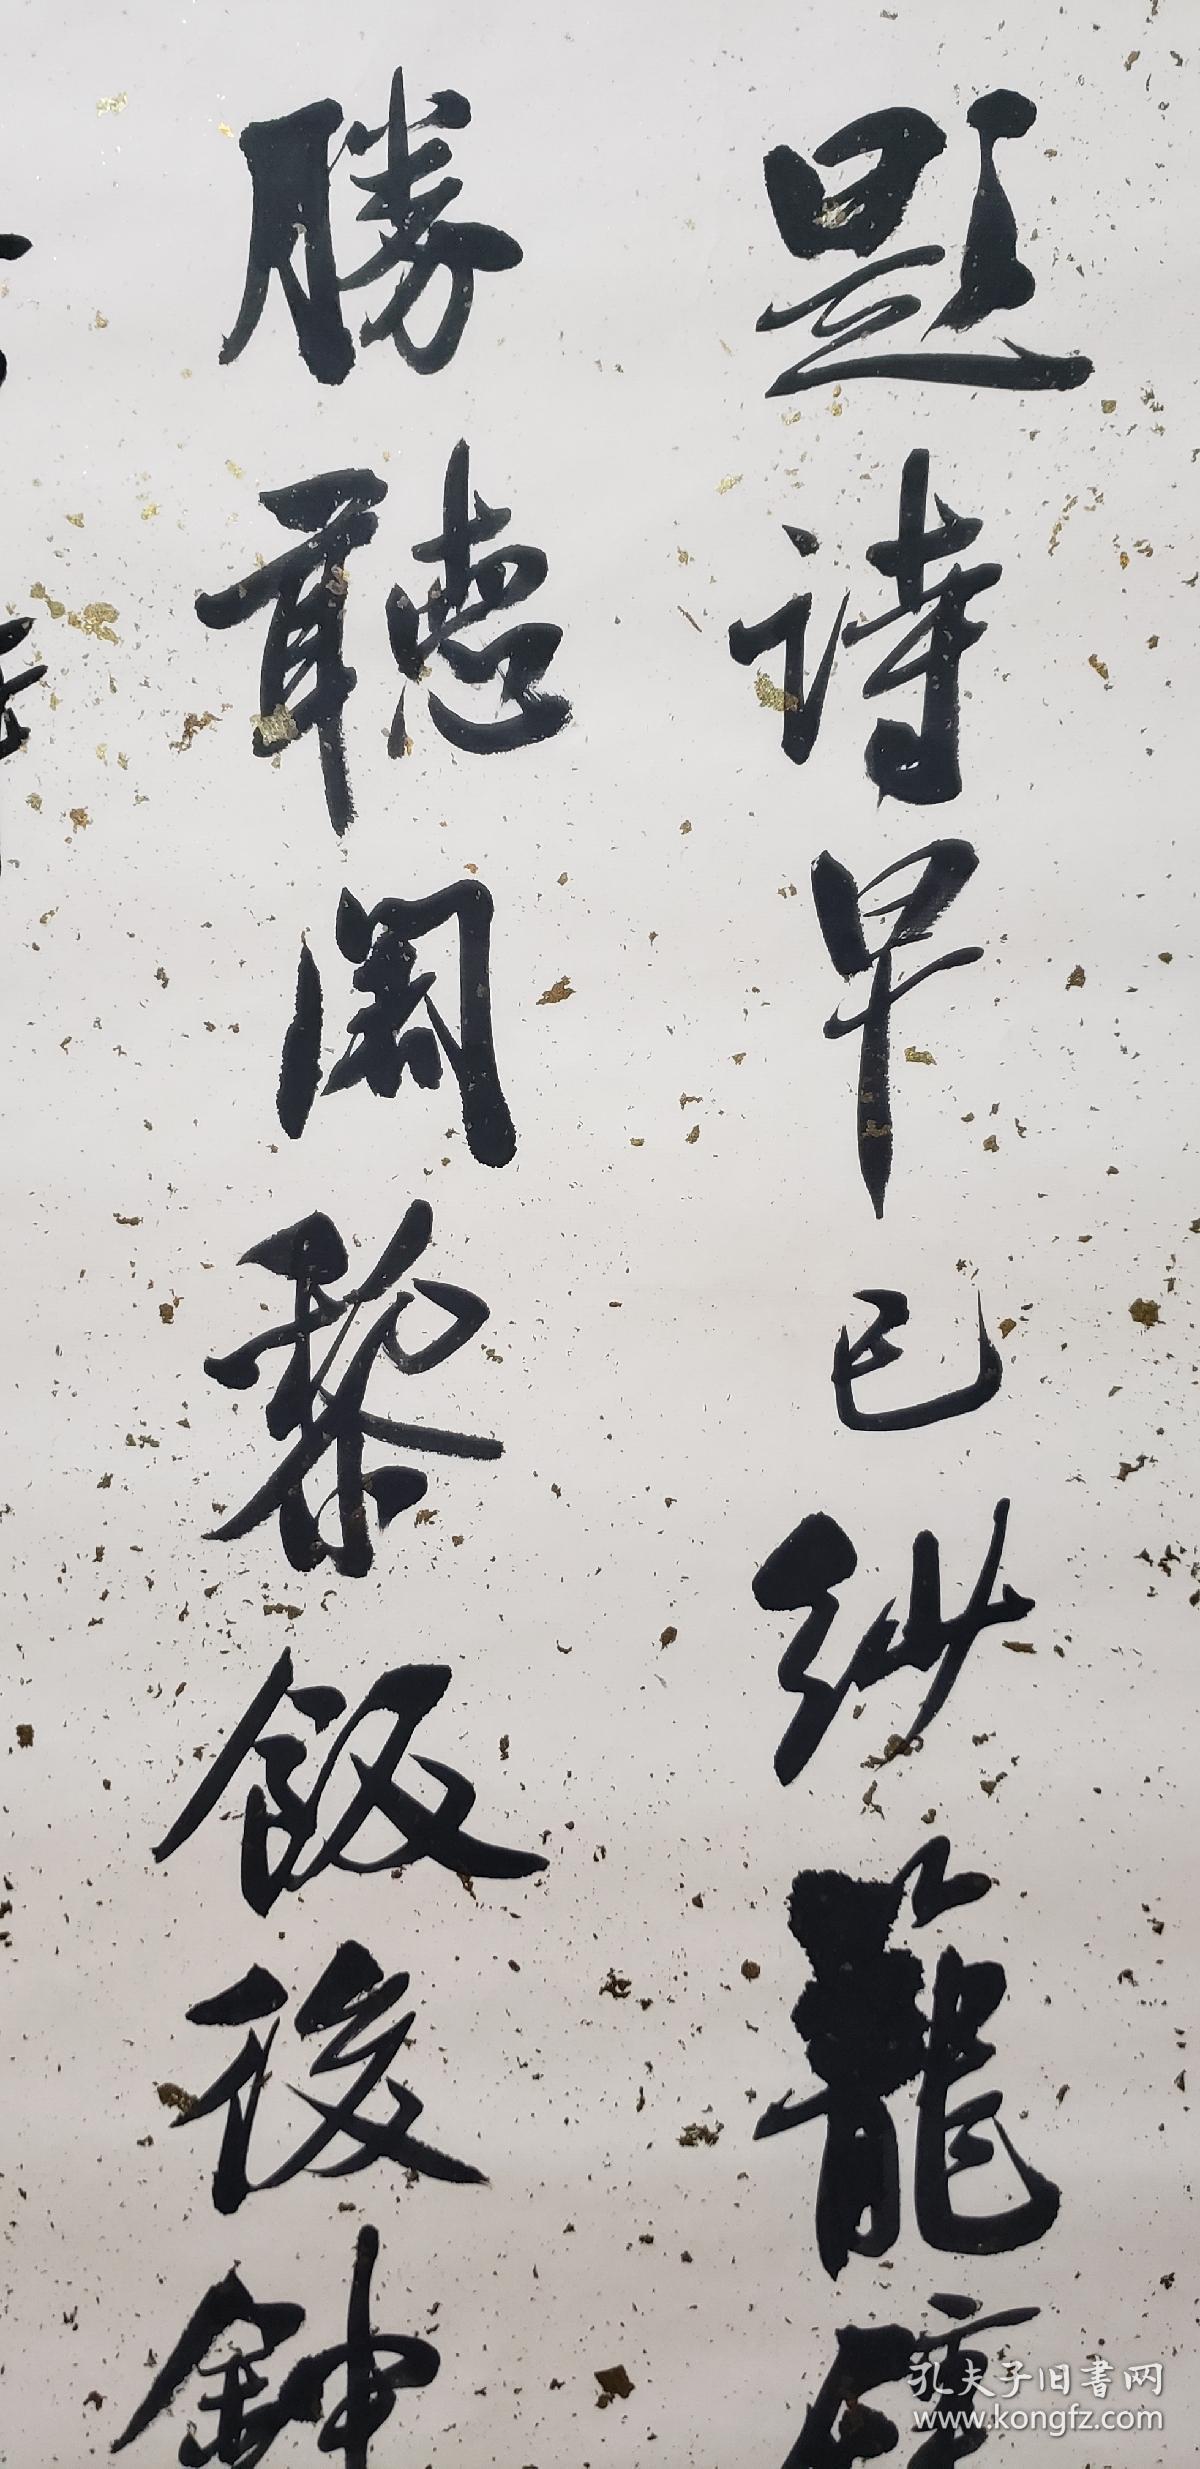 題詩早已紗籠壁
勝聽闍黎飯後鐘
孔夫子旧书网
www.kongfz.com